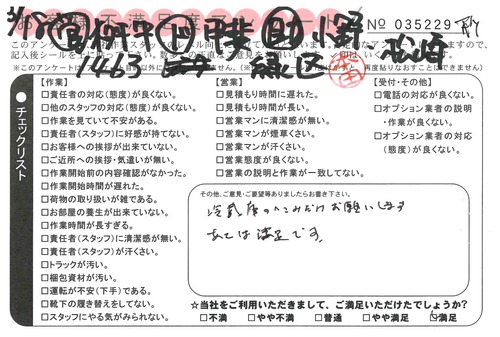 お客様不満足度アンケート
No 035229
緑区
このアンケートは
記入後シールを
【作業】
□責任者の対応(態度)が良くない。
□他のスタッフの対応(態度)が良くない。
□作業を見ていて不安がある。
□責任者(スタッフ)に好感が持てない。
□お客様への挨拶が出来ていない。
□ご近所への挨拶・気遣いが無い。
□作業開始前の内容確認がなかった。
□作業開始時間が遅れた。
□荷物の取り扱いが雑である。
□お部屋の養生が出来ていない。
□作業時間が長すぎる。
□責任者(スタッフ)に清潔感が無い。
□責任者(スタッフ)が汗くさい。
□トラックが汚い。
□梱包資材が汚い。
□運転が不安(下手)である。
□靴下の履き替えをしてない。
□スタッフにやる気がみられない。
【営業】
□見積もり時間に遅れた。
□見積もり時間が長い。
□営業マンに清潔感が無い。
□営業マンが煙草くさい。
□営業マンが汗くさい。
□営業態度が良くない。
□営業の説明と作業が一致してない。
【受付・その他】
□電話の対応が良くない。
□オプション業者の説明
・作業が良くない。
□オプション業者の対応
(態度)が良くない。
●チェックリスト
その他、ご意見・ご要望等ありましたらお書き下さい。
冷蔵庫のへこみだけお願いします
あとは満足です。
☆当社をご利用いただきまして、ご満足いただけたでしょうか?
□不満 □やや不満 □普通 □やや満足 □満足